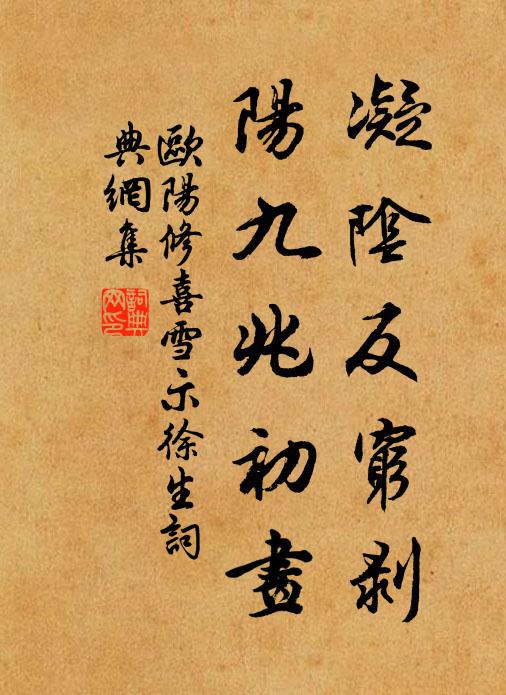 凝陰反窮剝
陽九兆初畫
歐陽修喜雪示徐生詞
典網集
詞典網印